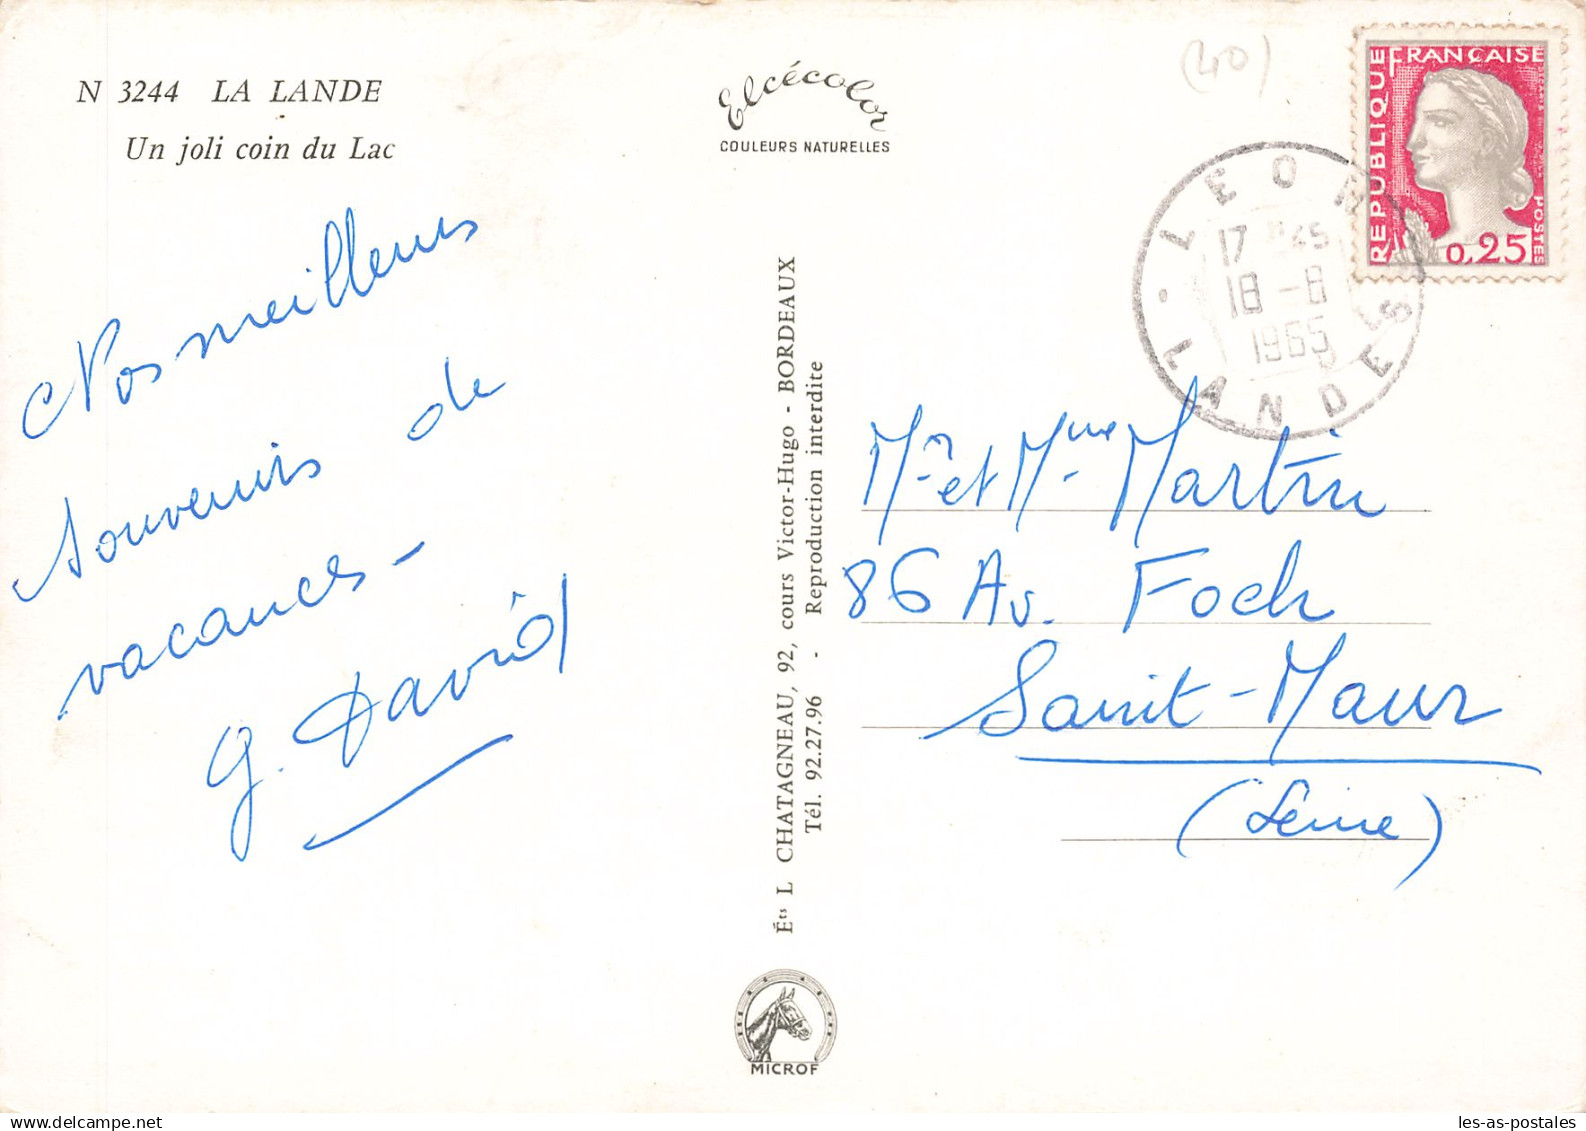 N 3244 LA LANDE
Un joli coin du Lac
Elcécolor
COULEURS NATURELLES
(40)
RÉPUBLIQUE FRANÇAISE
POSTES
0,25
LEON
17 H 45
18 -8
1965
LANDES
Nos meilleurs
souvenirs de
vacances -
G. David
Éts L CHATAGNEAU, 92, cours Victor-Hugo - BORDEAUX
Tél. 92.27.96 - Reproduction interdite
Mr et Mme Martin
86 Av. Foch
Saint-Maur
(Seine)
MICROF
www.delcampe.net
les-as-postales